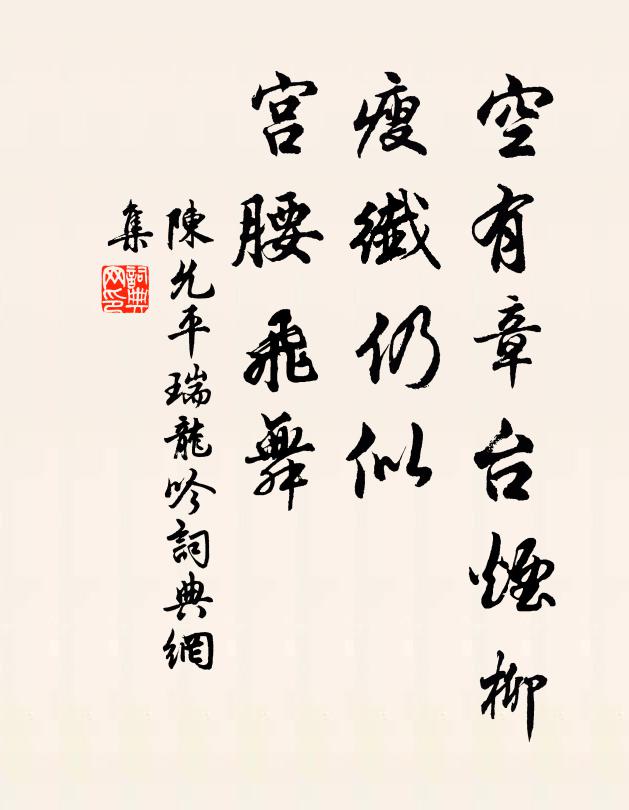 空有章台煙柳
瘦纖仍似
宮腰飛舞
陳允平瑞龍吟詞典網
集
詞典
网印